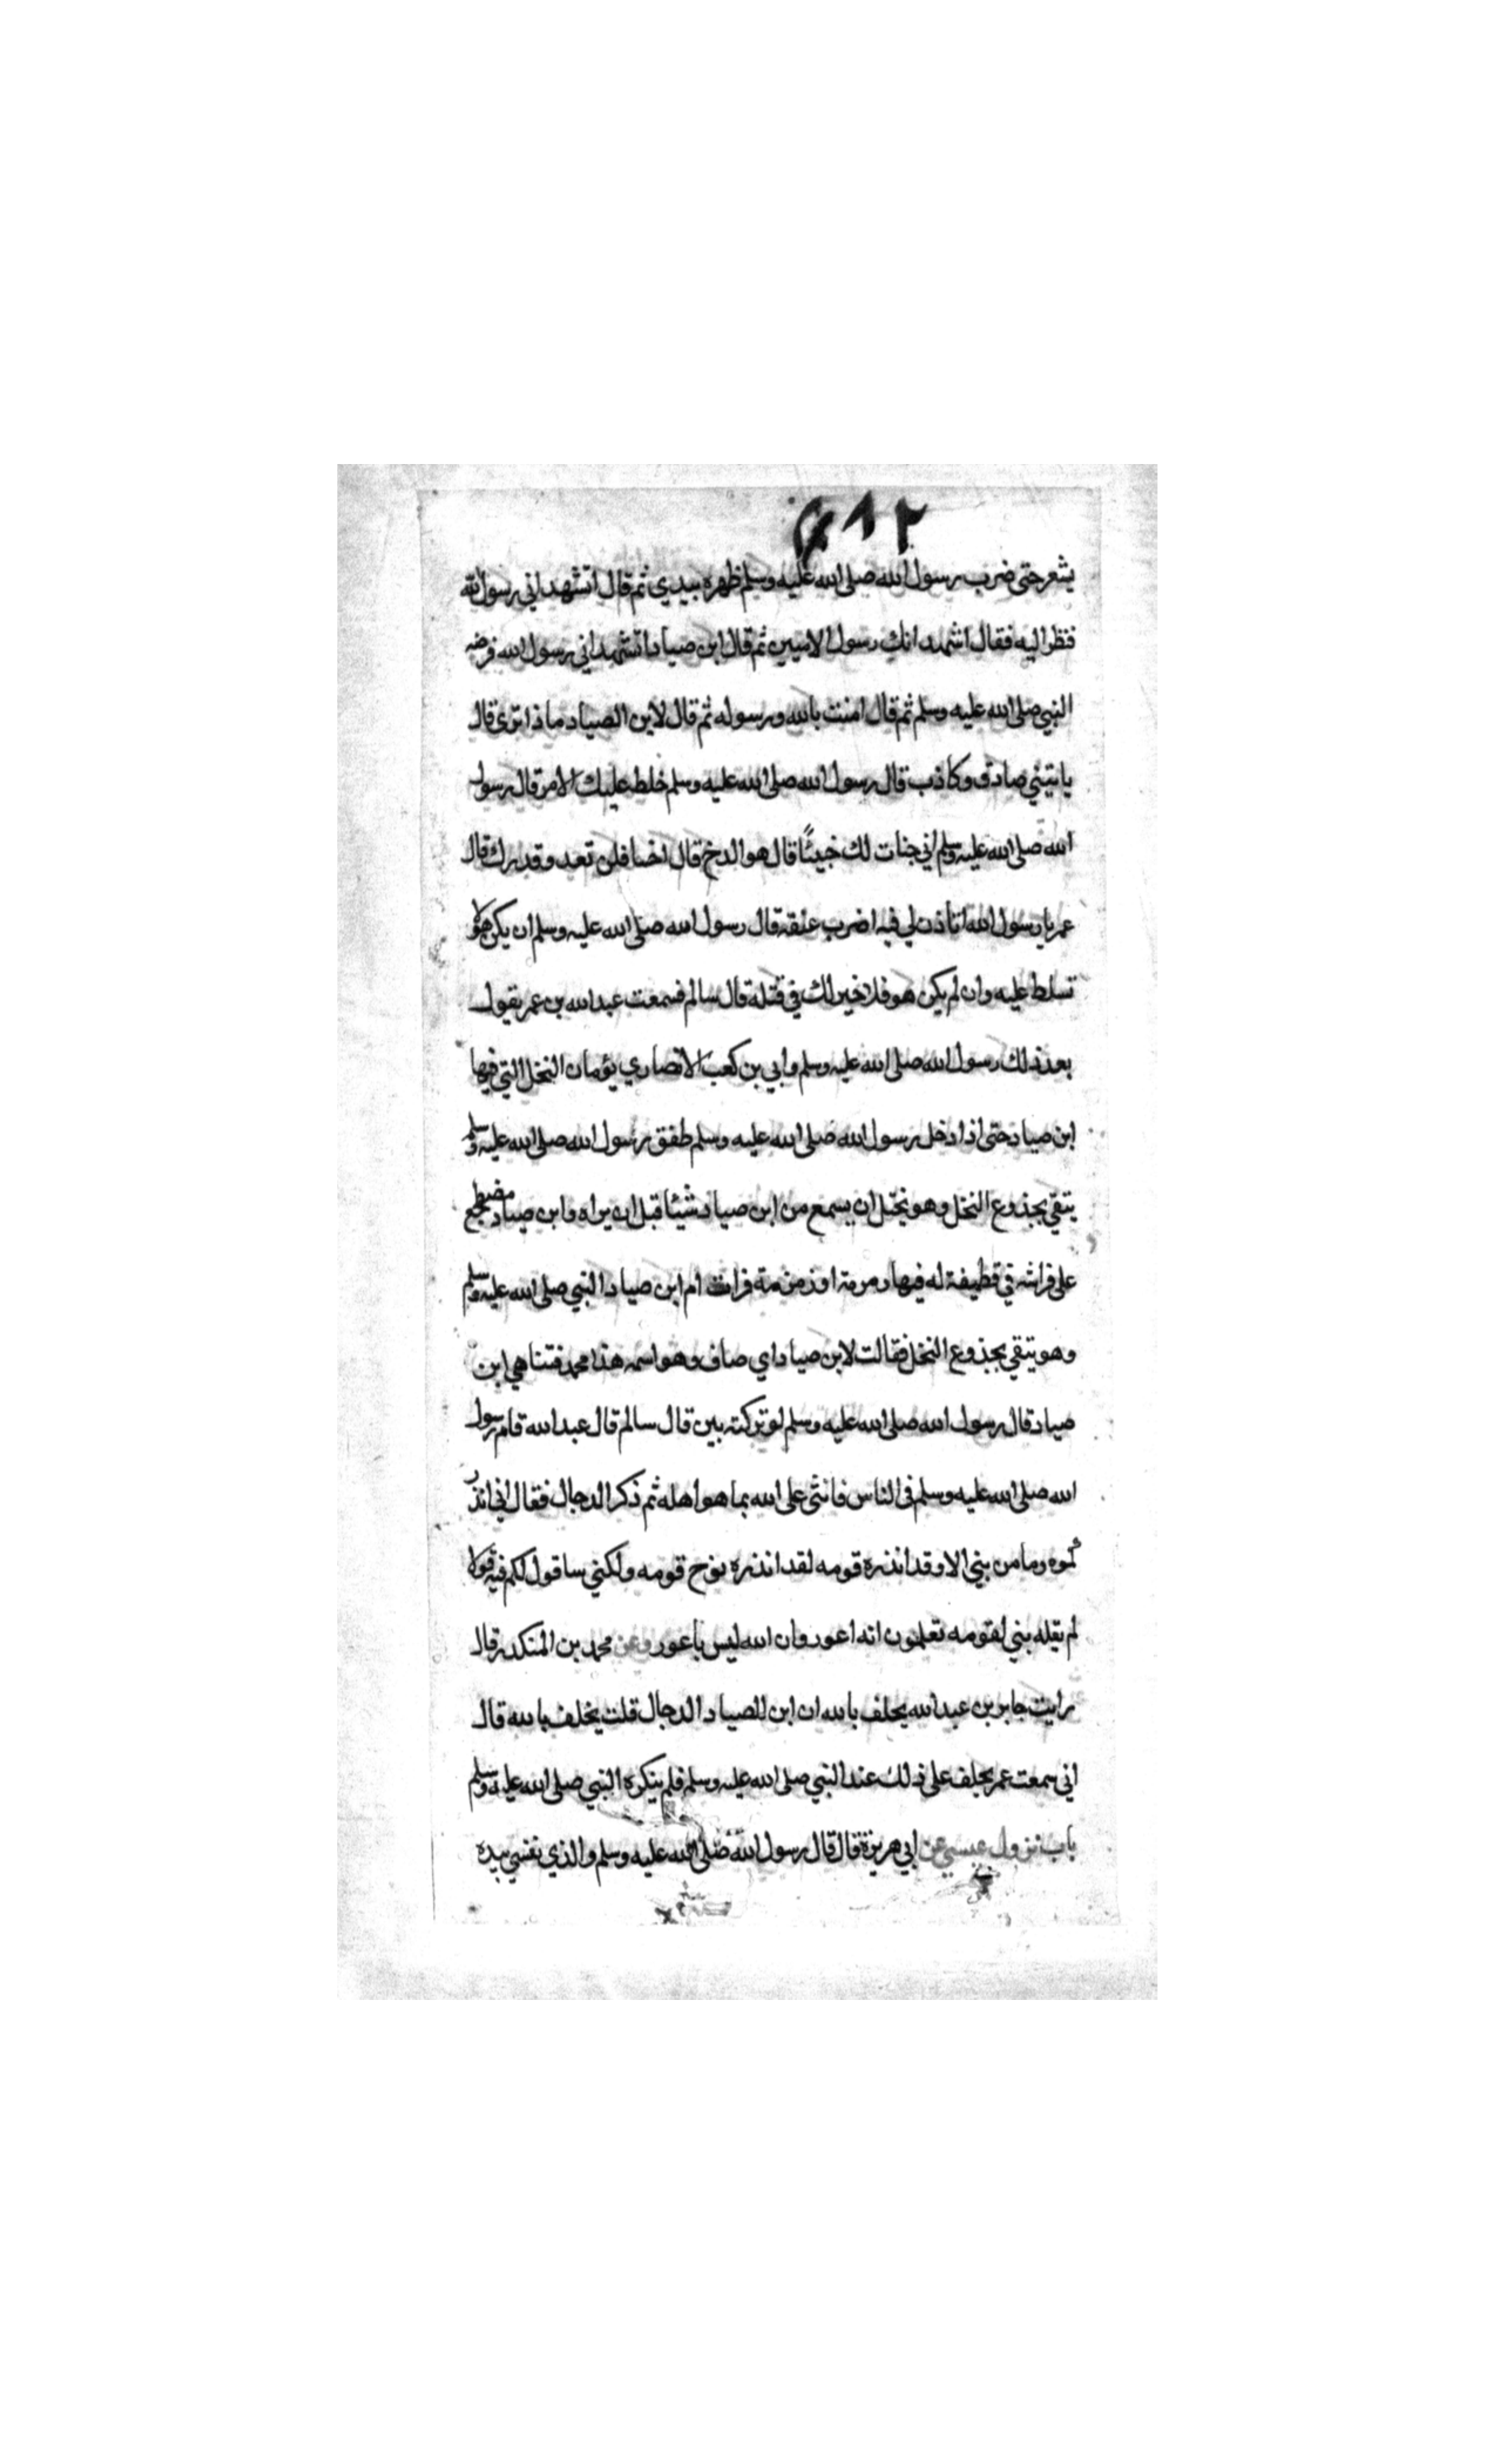 يشعر حتى ضرب رسول الله صلى الله عليه وسلم ظهره بيدي ثم قال اتشهد اني رسول الله
فنظر اليه فقال اشهد انك رسول الاميين ثم قال ابن صياد اتشهد اني رسول الله فرضه
النبي صلى الله عليه وسلم ثم قال امنت بالله ورسوله ثم قال لابن الصياد ماذا ترى قال
ياتيني صادق وكاذب قال رسول الله صلى الله عليه وسلم خلط عليك الامر قال رسول
الله صلى الله عليه وسلم اني خبات لك خبيئًا قال هو الدخ قال اخسا فلن تعد وقدرك قال
عمر يا رسول الله اتاذن لي فيه اضرب عنقه قال رسول الله صلى الله عليه وسلم ان يكن هو لا
تسلط عليه وان لم يكن هو فلا خير لك في قتلة قال سالم فسمعت عبد الله بن عمر يقول
بعد ذلك رسول الله صلى الله عليه وسلم وابي بن كعب الانصاري يؤمان النخل التي فيها
ابن صياد حتى اذا دخل رسول الله صلى الله عليه وسلم طفق رسول الله صلى الله عليه وسلم
يتقي بجذوع النخل وهو يختل ان يسمع من ابن صياد شيئا قبل ان يراه وابن صياد مضطجع
على فراشه في قطيفة له فيها رمرمة او زمزمة فرات ام ابن صياد النبي صلى الله عليه وسلم
وهو يتقي بجذوع النخل فقالت لابن صياد اي صاف وهو اسمه هذا محمد فتناهي ابن
صياد قال رسول الله صلى الله عليه وسلم لو تركته بين قال سالم قال عبد الله قام رسول
الله صلى الله عليه وسلم في الناس فاثنى على الله بما هو اهله ثم ذكر الدجال فقال اني انذر
كموه وما من نبي الا وقد انذره قومه لقد انذره نوح قومه ولكني ساقول لكم فيه قولا
لم يقله نبي لقومه تعلمون انه اعور وان الله ليس باعور وعن محمد بن المنكدر قال
رايت جابر بن عبد الله يحلف بالله ان ابن الصياد الدجال قلت يحلف بالله قال
اني سمعت عمر يحلف على ذلك عند النبي صلى الله عليه وسلم فلم ينكره النبي صلى الله عليه وسلم
باب نزول عيسي عن ابي هريرة قال قال رسول الله صلى الله عليه وسلم والذي نفسي بيده